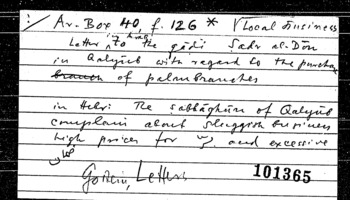 Ar. Box 40, f. 126 * √ Local Business
Letter in Arabic to the qāḍī Ṣadr al-Dīn
in Qalyūb with regard to the purchase
branch of palm branches
in Hebr: The ṣabbāghūn of Qalyūb
complain about sluggish business
high prices for and excessive
Goitein, Letters
101365